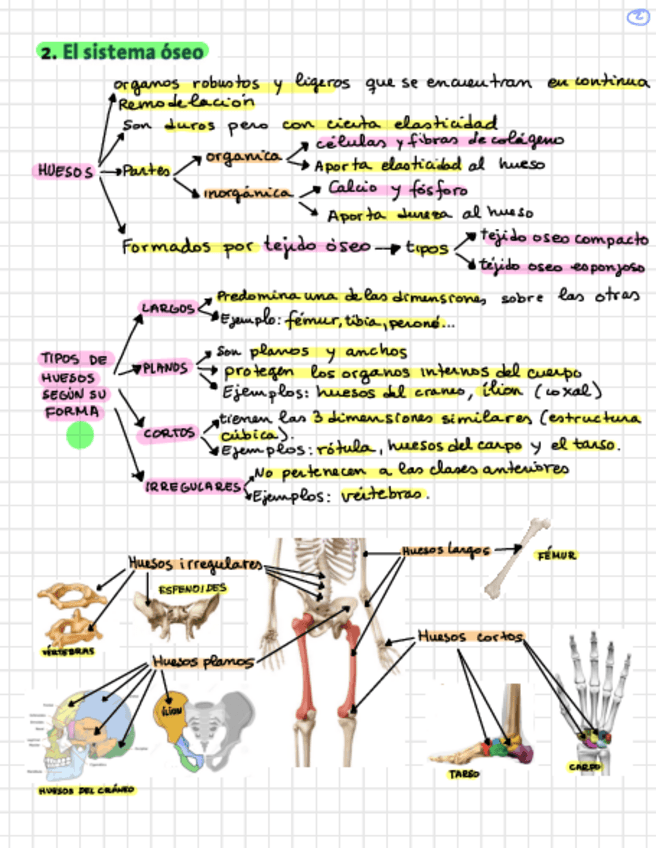 2
2. El sistema óseo
organos robustos y ligeros que se encuentran en continua
Remodelación
Son duros pero con cierta elasticidad
HUESOS
Partes
organica
células y fibras de colágeno
Aporta elasticidad al hueso
inorgánica
Calcio y fósforo
Aporta dureza al hueso
Formados por tejido óseo
tipos
tejido oseo compacto
tejido oseo esponjoso
TIPOS DE
HUESOS
SEGÚN SU
FORMA
LARGOS
Predomina una de las dimensiones, sobre las otras
Ejemplo: fémur, tibia, peroné...
PLANOS
Son planos y anchos
protegen los organos internos del cuerpo
Ejemplos: huesos del craneo, ílion (coxal)
CORTOS
tienen las 3 dimensiones similares (estructura
cúbica).
Ejemplos: rótula, huesos del carpo y el tarso.
IRREGULARES
No pertenecen a las clases anteriores
Ejemplos: vértebras.
Huesos irregulares
Huesos largos
FÉMUR
ESFENOIDES
VÉRTEBRAS
Huesos cortos
Huesos planos
ILION
TARSO
CARPO
HUESOS DEL CRÁNEO